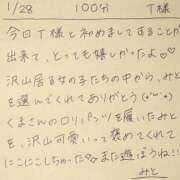 1/28 100分 T様
今日T様と初めましてすることが
出来て、とっても嬉しかったよ♡
沢山居る女の子たちの中から、みと
を選んでくれてありがとう(*'ω'*)
くまさんのロリパンツを履いたみと
を、沢山可愛いって褒めてくれて
にこにこしちゃったな また遊ぼうね!!
みと